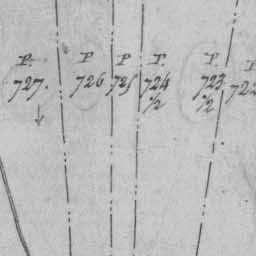 P. P P P. P. P
727. 726 725 724 723 722
1/2 1/2